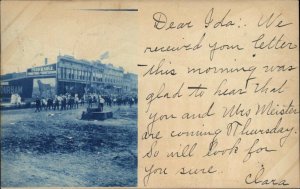 Dear Ida:. We
received your letter
this morning was
glad to hear that
you and Mrs Meister
are coming Thursday.
So will look for
you sure.
Clara